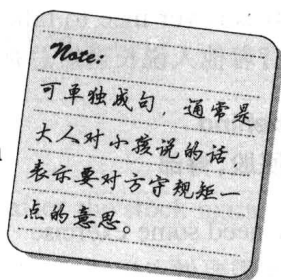 Note:
可单独成句，通常是
大人对小孩说的话，
表示要对方守规矩一
点的意思。